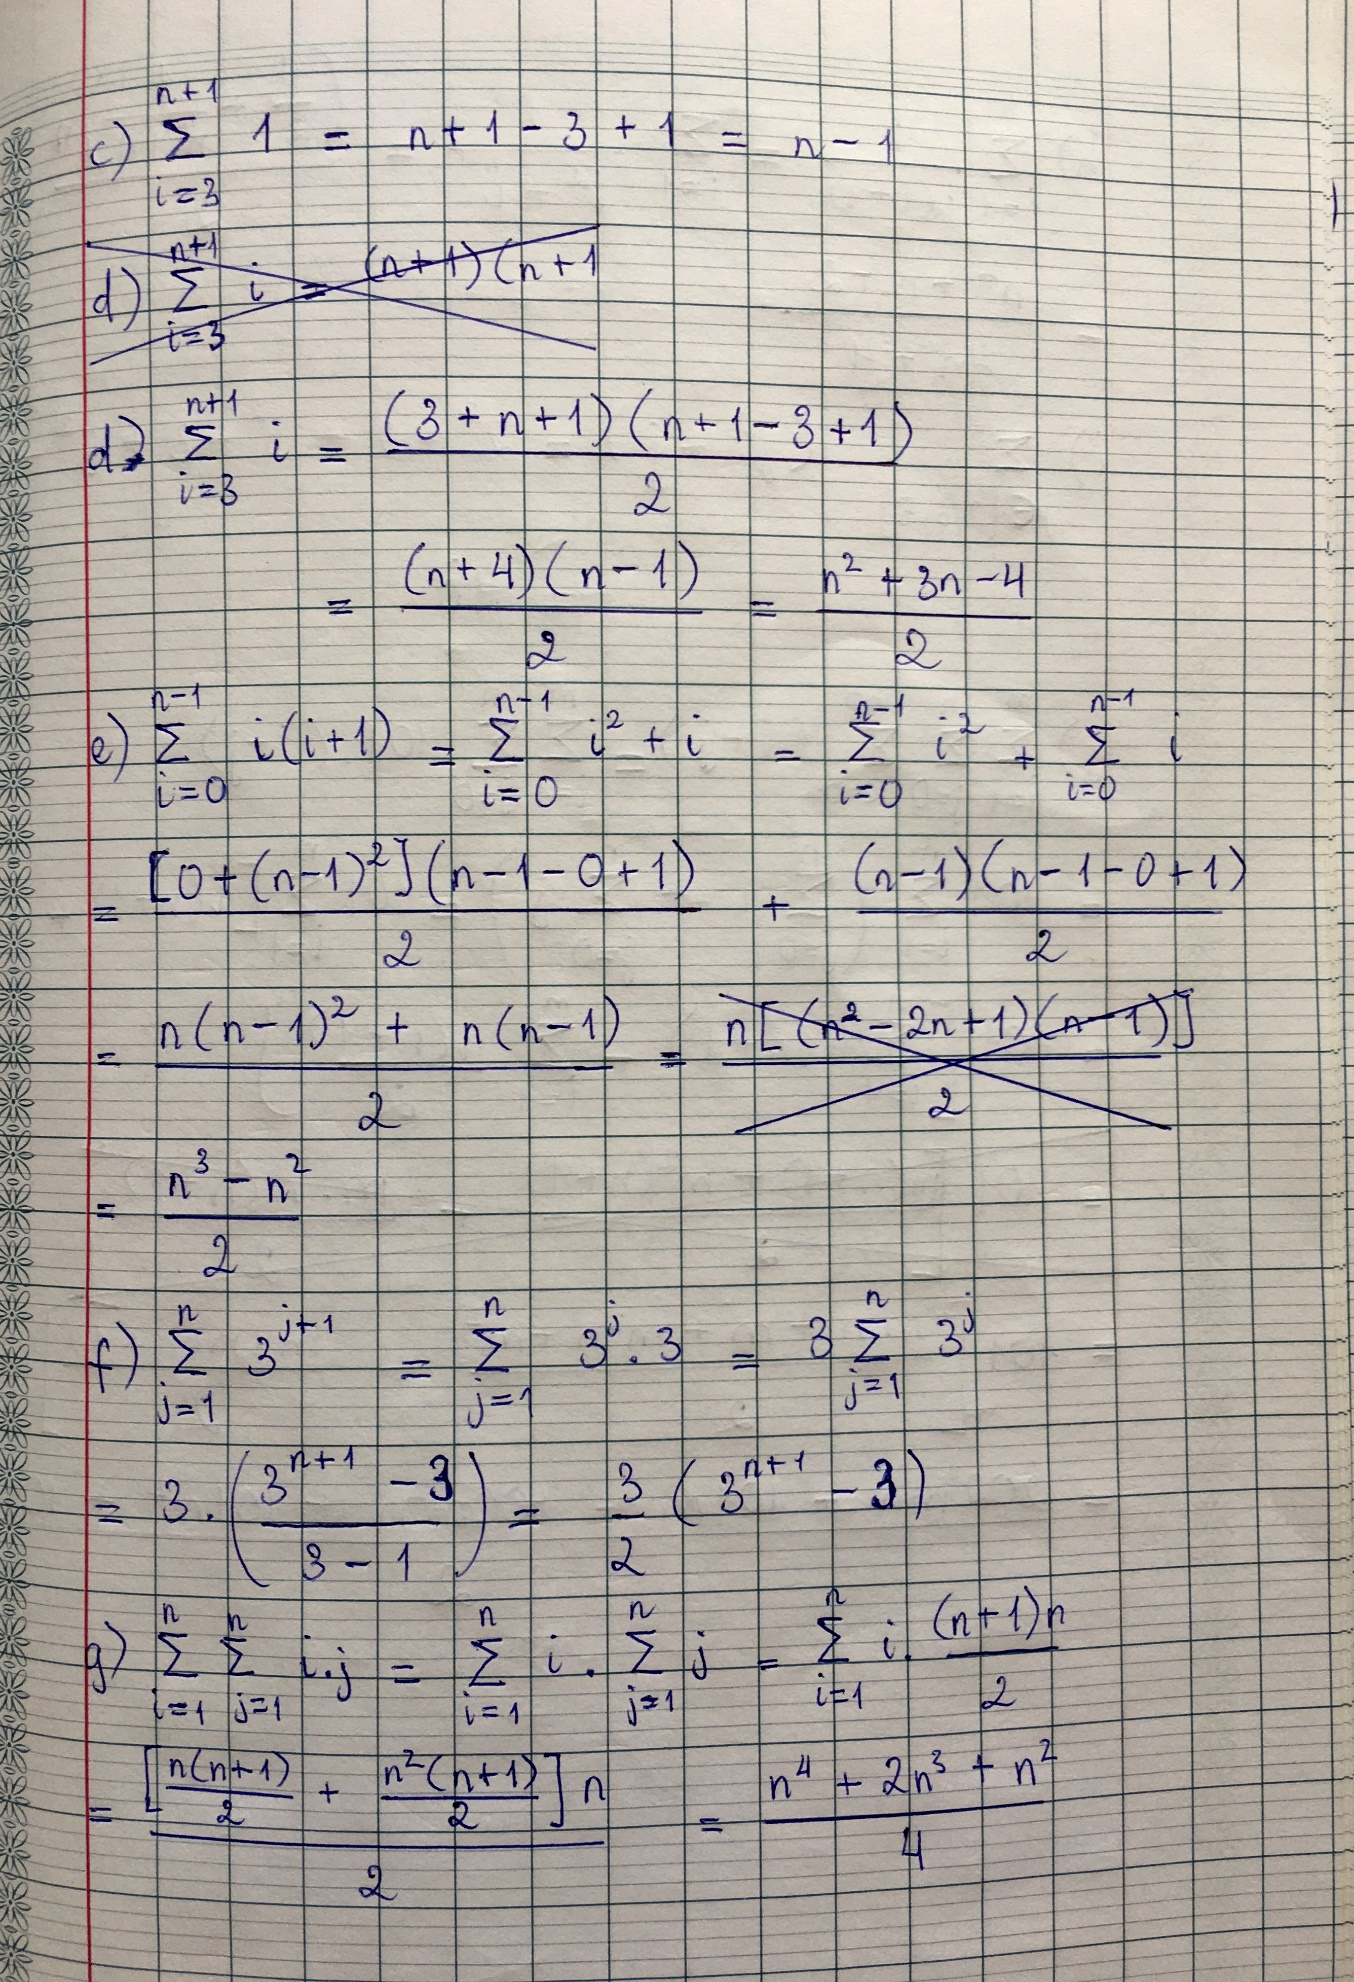 c) \sum_{i=3}^{n+1} 1 = n+1-3+1 = n-1
d) \sum_{i=3}^{n+1} i = (n+1)(n+1
d) \sum_{i=3}^{n+1} i = \frac{(3+n+1)(n+1-3+1)}{2}
= \frac{(n+4)(n-1)}{2} = \frac{n^2+3n-4}{2}
e) \sum_{i=0}^{n-1} i(i+1) = \sum_{i=0}^{n-1} i^2+i = \sum_{i=0}^{n-1} i^2 + \sum_{i=0}^{n-1} i
= \frac{[0+(n-1)^2](n-1-0+1)}{2} + \frac{(n-1)(n-1-0+1)}{2}
= \frac{n(n-1)^2 + n(n-1)}{2} = \frac{n[(n^2-2n+1)(n-1)]}{2}
= \frac{n^3-n^2}{2}
f) \sum_{j=1}^{n} 3^{j+1} = \sum_{j=1}^{n} 3^j . 3 = 3 \sum_{j=1}^{n} 3^j
= 3. \left(\frac{3^{n+1}-3}{3-1}\right) = \frac{3}{2} (3^{n+1}-3)
g) \sum_{i=1}^{n} \sum_{j=1}^{n} i.j = \sum_{i=1}^{n} i . \sum_{j=1}^{n} j = \sum_{i=1}^{n} i. \frac{(n+1)n}{2}
= \frac{\left[\frac{n(n+1)}{2} + \frac{n^2(n+1)}{2}\right] n}{2} = \frac{n^4+2n^3+n^2}{4}